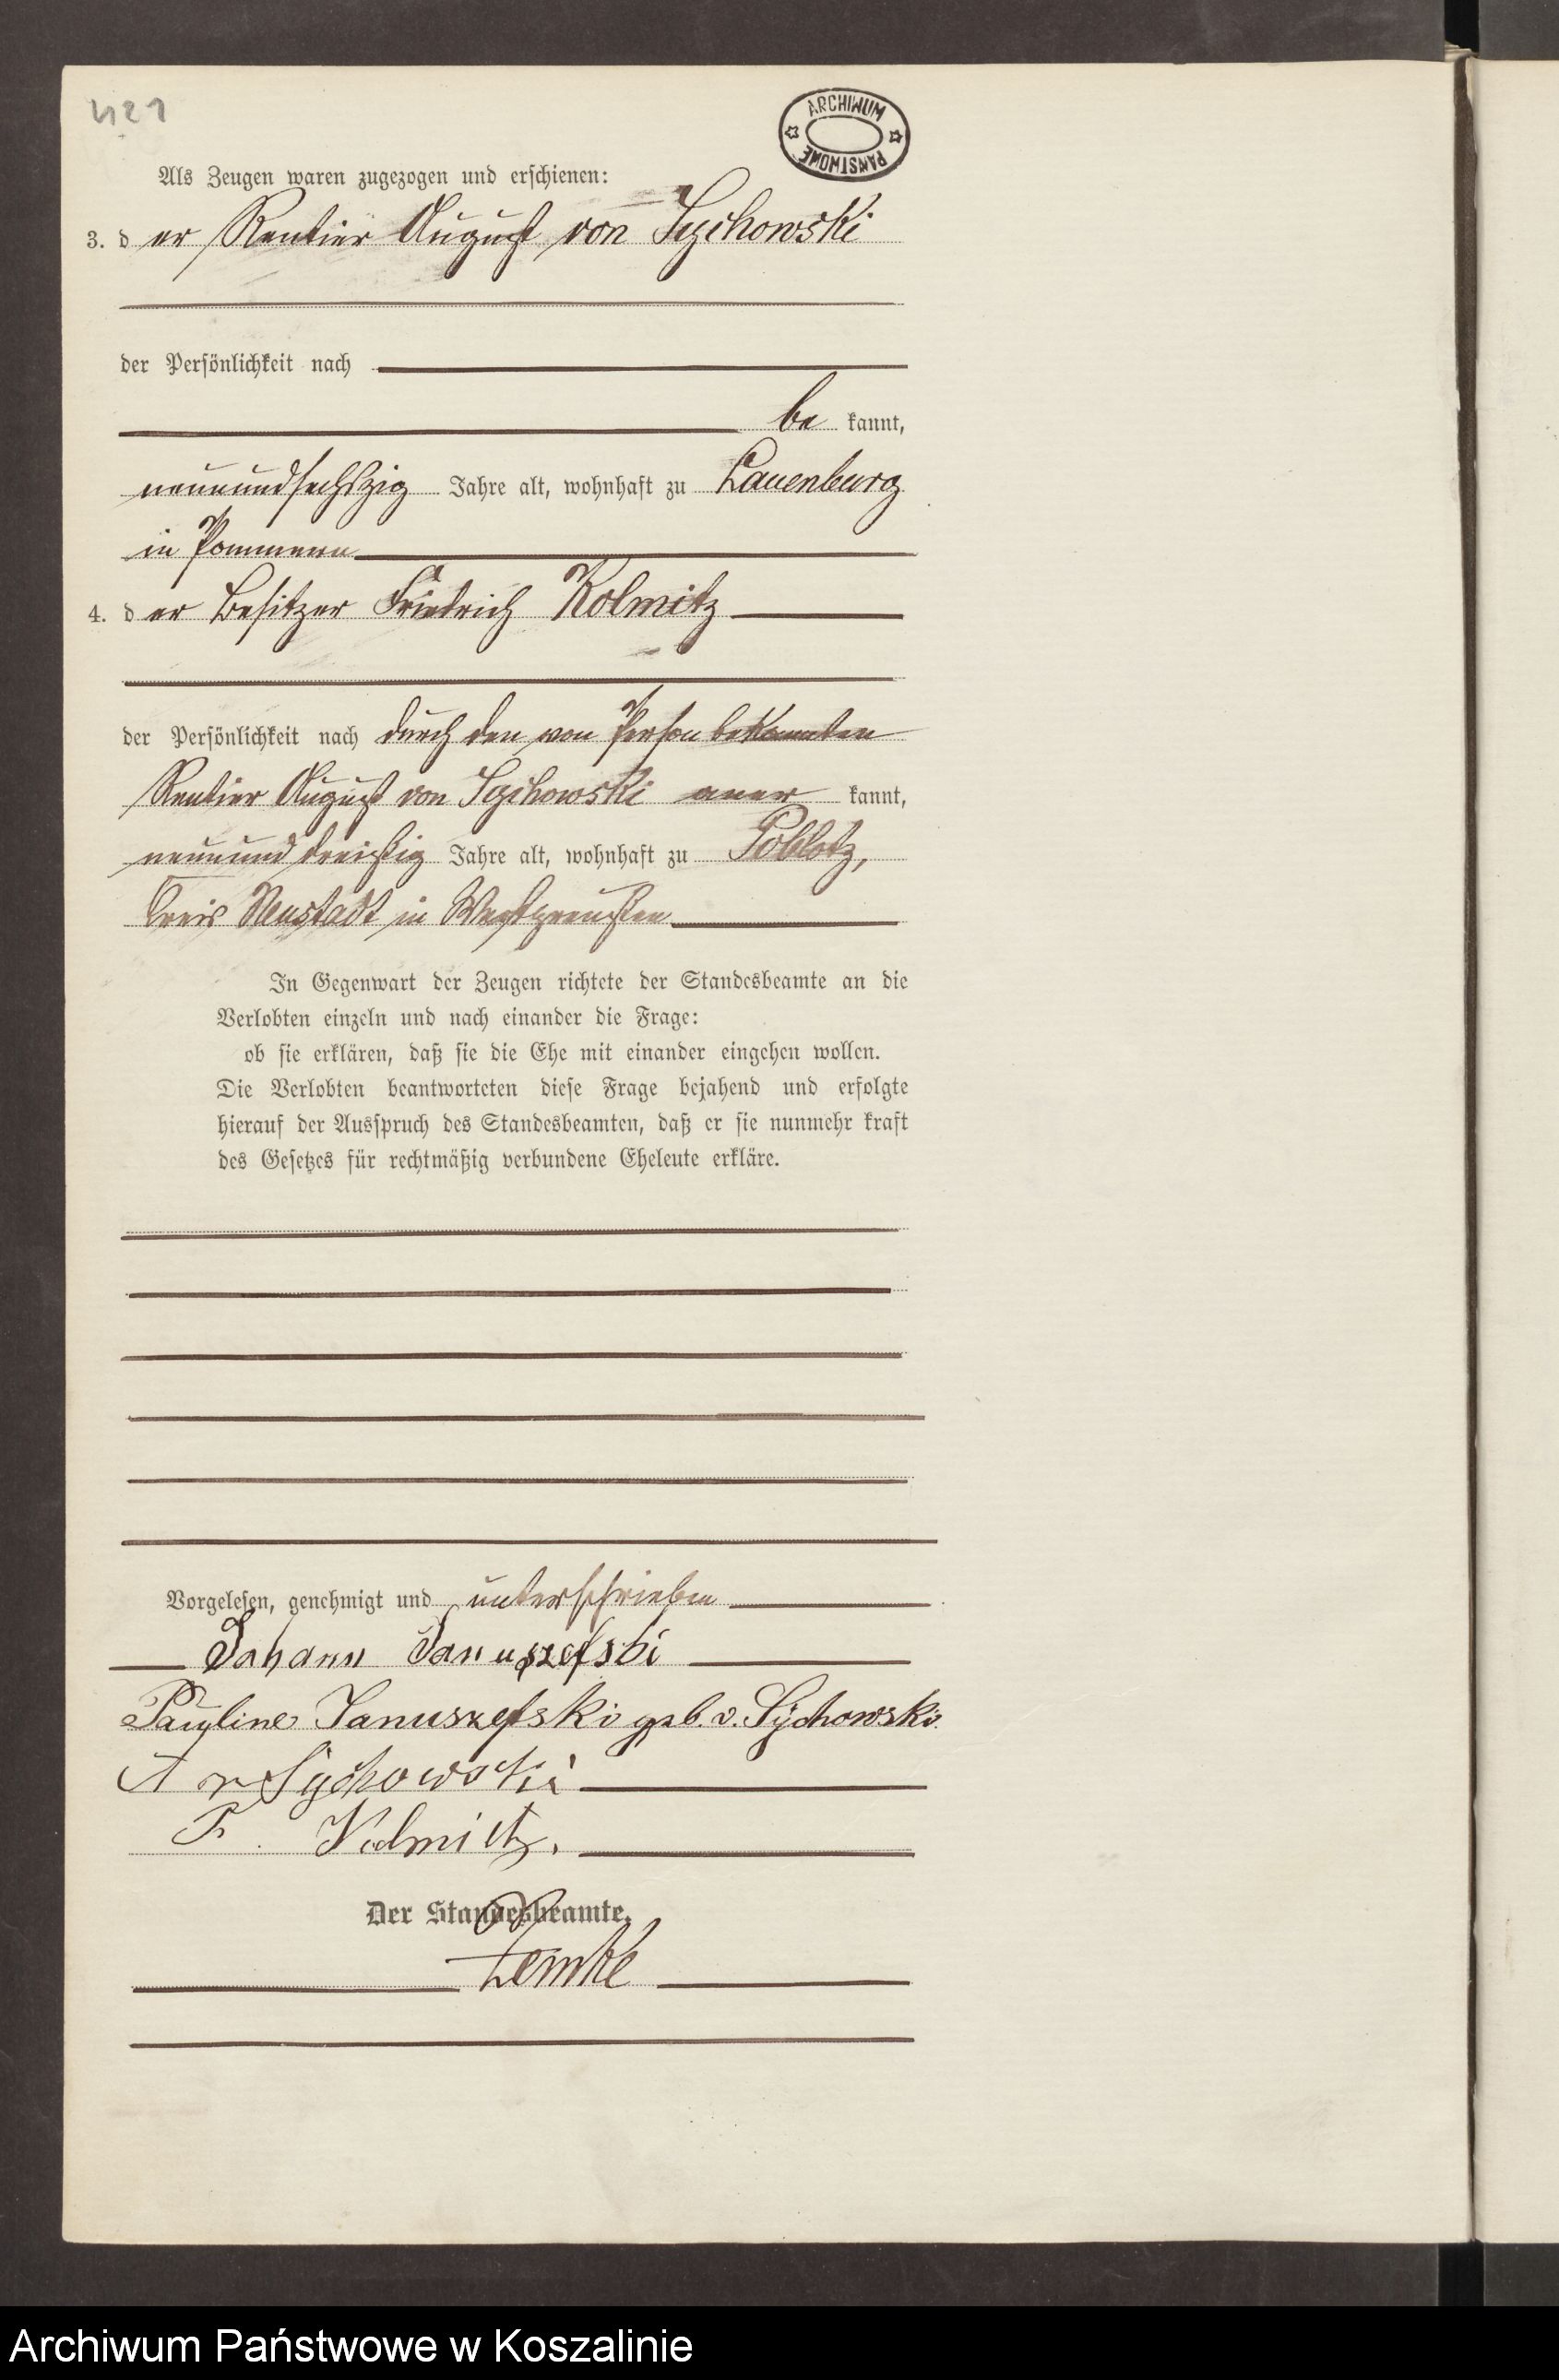 421
ARCHIWUM PAŃSTWOWE
Als Zeugen waren zugezogen und erschienen:
3. der Rentier August von Sychowski
der Persönlichkeit nach
be kannt,
neunundsechszig Jahre alt, wohnhaft zu Lauenburg
in Pommern
4. der Besitzer Friedrich Kolmitz
der Persönlichkeit nach durch den von Person bekannten
Rentier August von Sychowski aner kannt,
neununddreißig Jahre alt, wohnhaft zu Poblotz,
Kreis Neustadt in Westpreußen
In Gegenwart der Zeugen richtete der Standesbeamte an die
Verlobten einzeln und nach einander die Frage:
ob sie erklären, daß sie die Ehe mit einander eingehen wollen.
Die Verlobten beantworteten diese Frage bejahend und erfolgte
hierauf der Ausspruch des Standesbeamten, daß er sie nunmehr kraft
des Gesetzes für rechtmäßig verbundene Eheleute erkläre.
Vorgelesen, genehmigt und unterschrieben
Johann Januszefski
Pauline Januszefski geb. v. Sÿchowski.
A v Sychowski
F. Kolmitz.
Der Standesbeamte.
Lemke
Archiwum Państwowe w Koszalinie